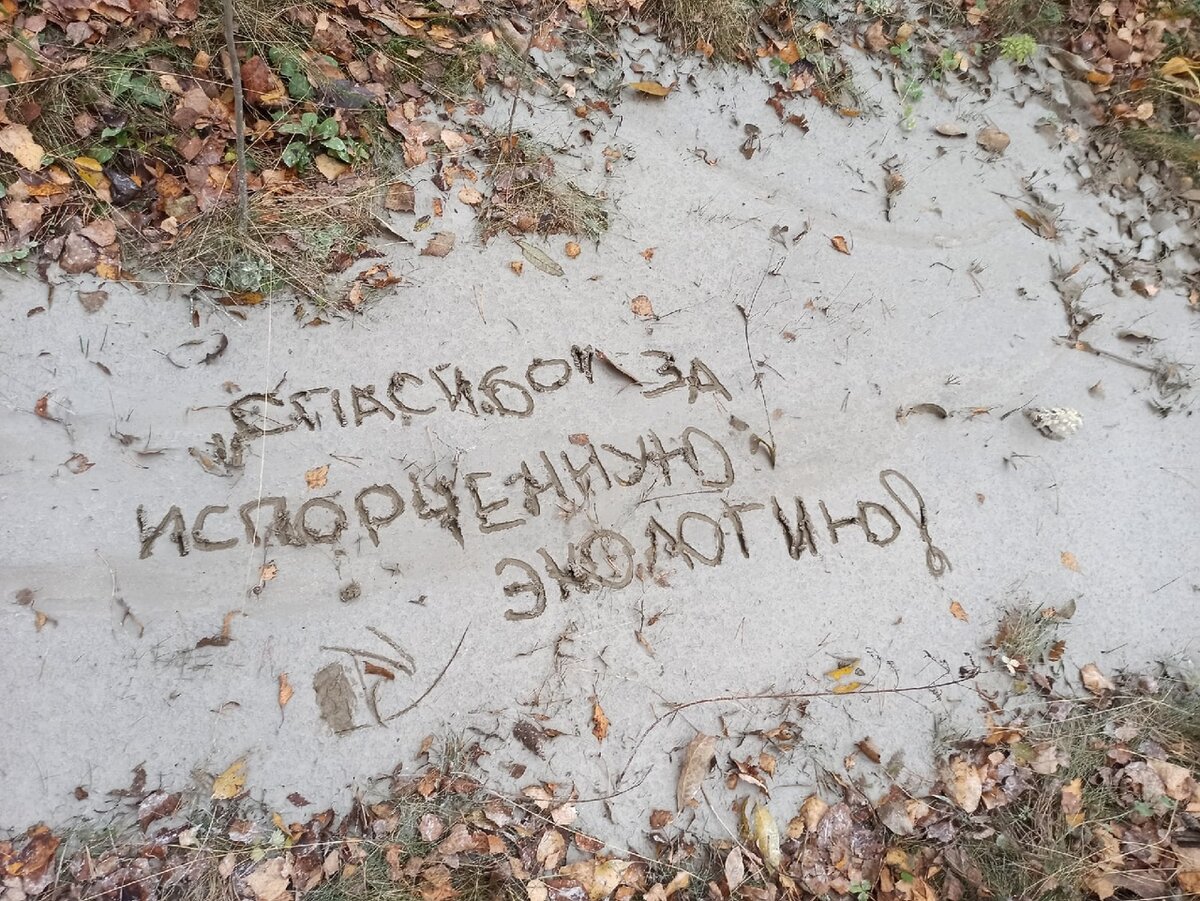 СПАСИБО ЗА
ИСПОРЧЕННУЮ
ЭКОЛОГИЮ!